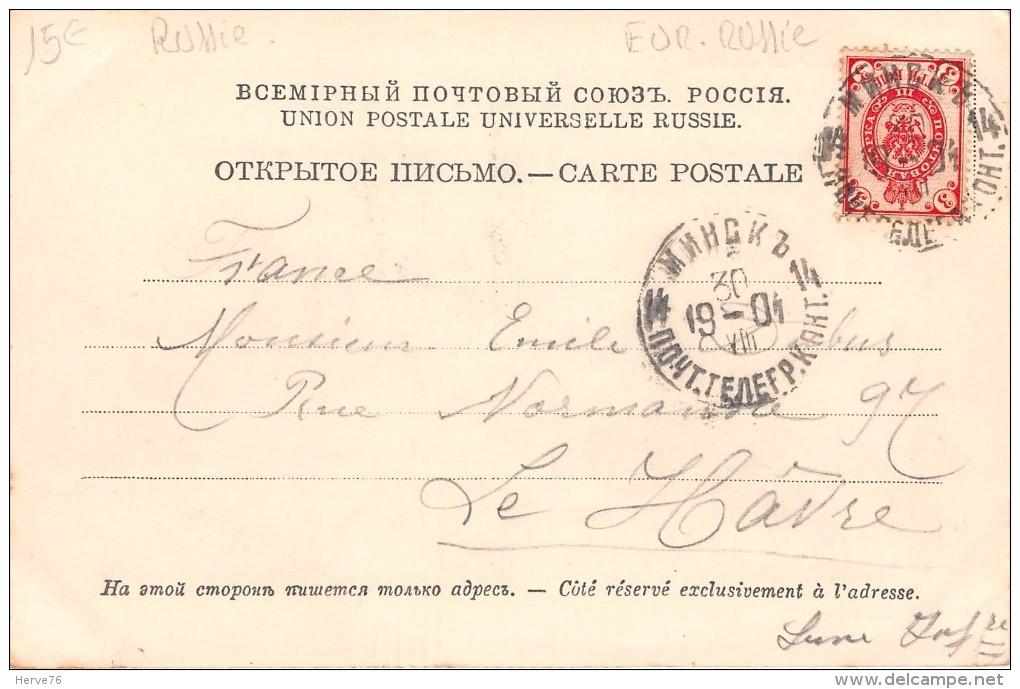 15€ Russie EUR. RUSSIE
ВСЕМІРНЫЙ ПОЧТОВЫЙ СОЮЗЪ. РОССІЯ.
UNION POSTALE UNIVERSELLE RUSSIE.
ОТКРЫТОЕ ПИСЬМО.—CARTE POSTALE
МИНСКЪ
14 14
19 01
3 3
МИНСКЪ
30
14 19-01 14
VIII
ПОЧТ.ТЕЛЕГР.КОНТ.
France
Monsieur Emile
Rue Normandie 97
Le Hâvre
На этой сторонѣ пишется только адресъ. — Côté réservé exclusivement à l'adresse.
Herve76
delcampe.net